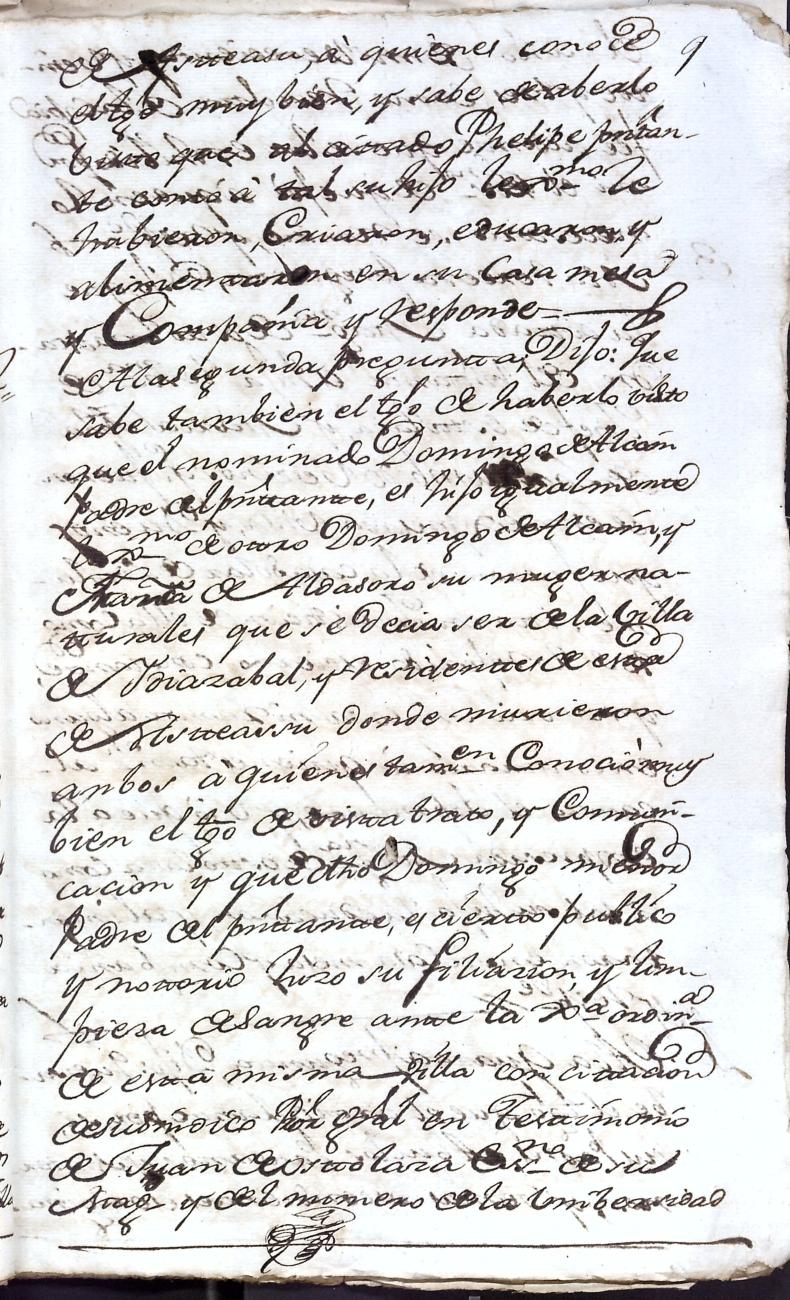 de Asteasu, a quienes conoce 9
el tgo muy bien, y sabe de aberlo
visto que al citado Phelipe pñtan-
te como à tal su hijo lexmo le
habieron, Criaron, educaron y
alimentaron en su Casa mesa
y Compañia y responde
A la segunda pregunta, Dijo: Que
sabe tambien el tgo de haberlo visto
que el nominado Domingo de Alcain
Padre del pñtante, es hijo igualmente
lexmo de otro Domingo de Alcain, y
Maria de Aldasoro su muger na-
turales que se decia ser de la Villa
de Idiazabal, y residentes de esta
de Asteassu donde murieron
anbos a quienes tamen Conoció muy
bien el tgo de vista trato, y Comuni-
cacion y que dho Domingo menor
Padre del pñtante, es cierto publico
y notorio hizo su filiazion, y lim-
pieza de sangre ante la Xa ordina
de esta misma Villa con citacion
de su sindico Pror gral en Testimonio
de Juan de ostolaza Esno de su
Mag y del numero de la Unibersidad